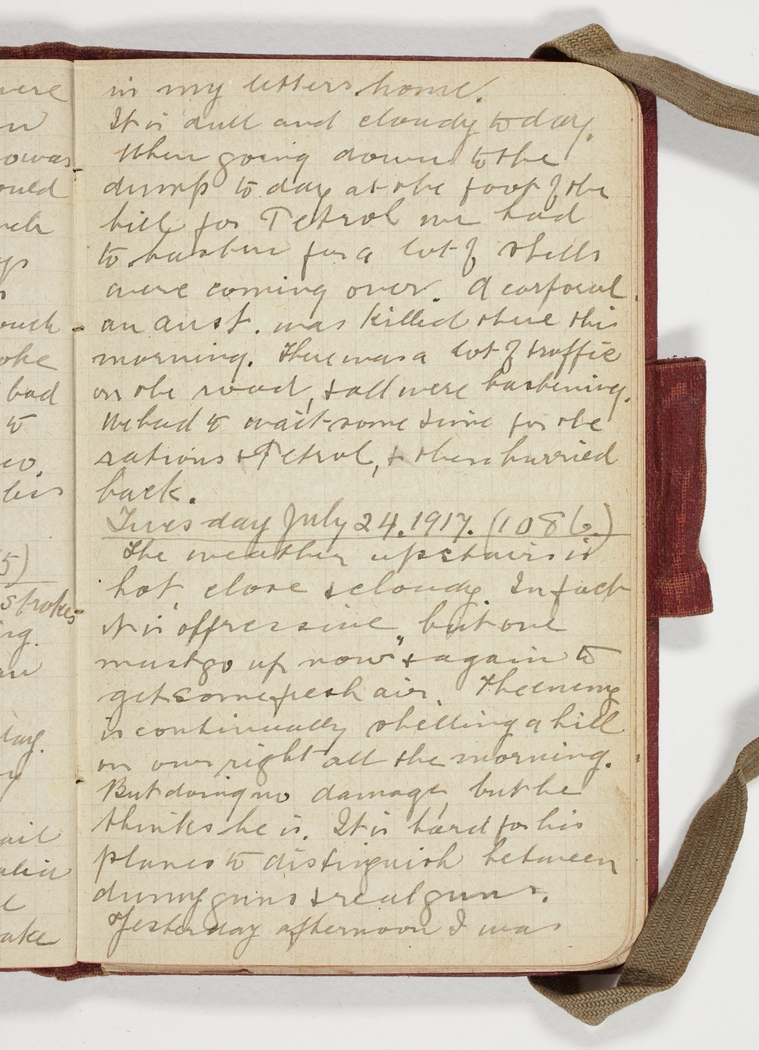 were
in my letters home.
It is dull and cloudy today.
When going down to the
dump to day at the foot of the
hill for Petrol we had
to hasten for a lot of shells
were coming over. A corporal
an Aust. was killed there this
morning. There was a lot of traffic
on the road, & all were hastening.
We had to wait some time for the
rations & Petrol, & then hurried
back.
Tuesday July 24. 1917. (1086.)
The weather upstairs is
hot close & cloudy. In fact
it is oppressive, but one
must go up now & again to
get some fresh air. The enemy
is continually shelling a hill
on our right all the morning.
But doing no damage, but he
thinks he is. It is hard for his
planes to distinguish between
dumy guns & real guns.
Yesterday afternoon I was
ould
ouch
oke
bad
to
his
5)
strokes
ing.
day.
ake